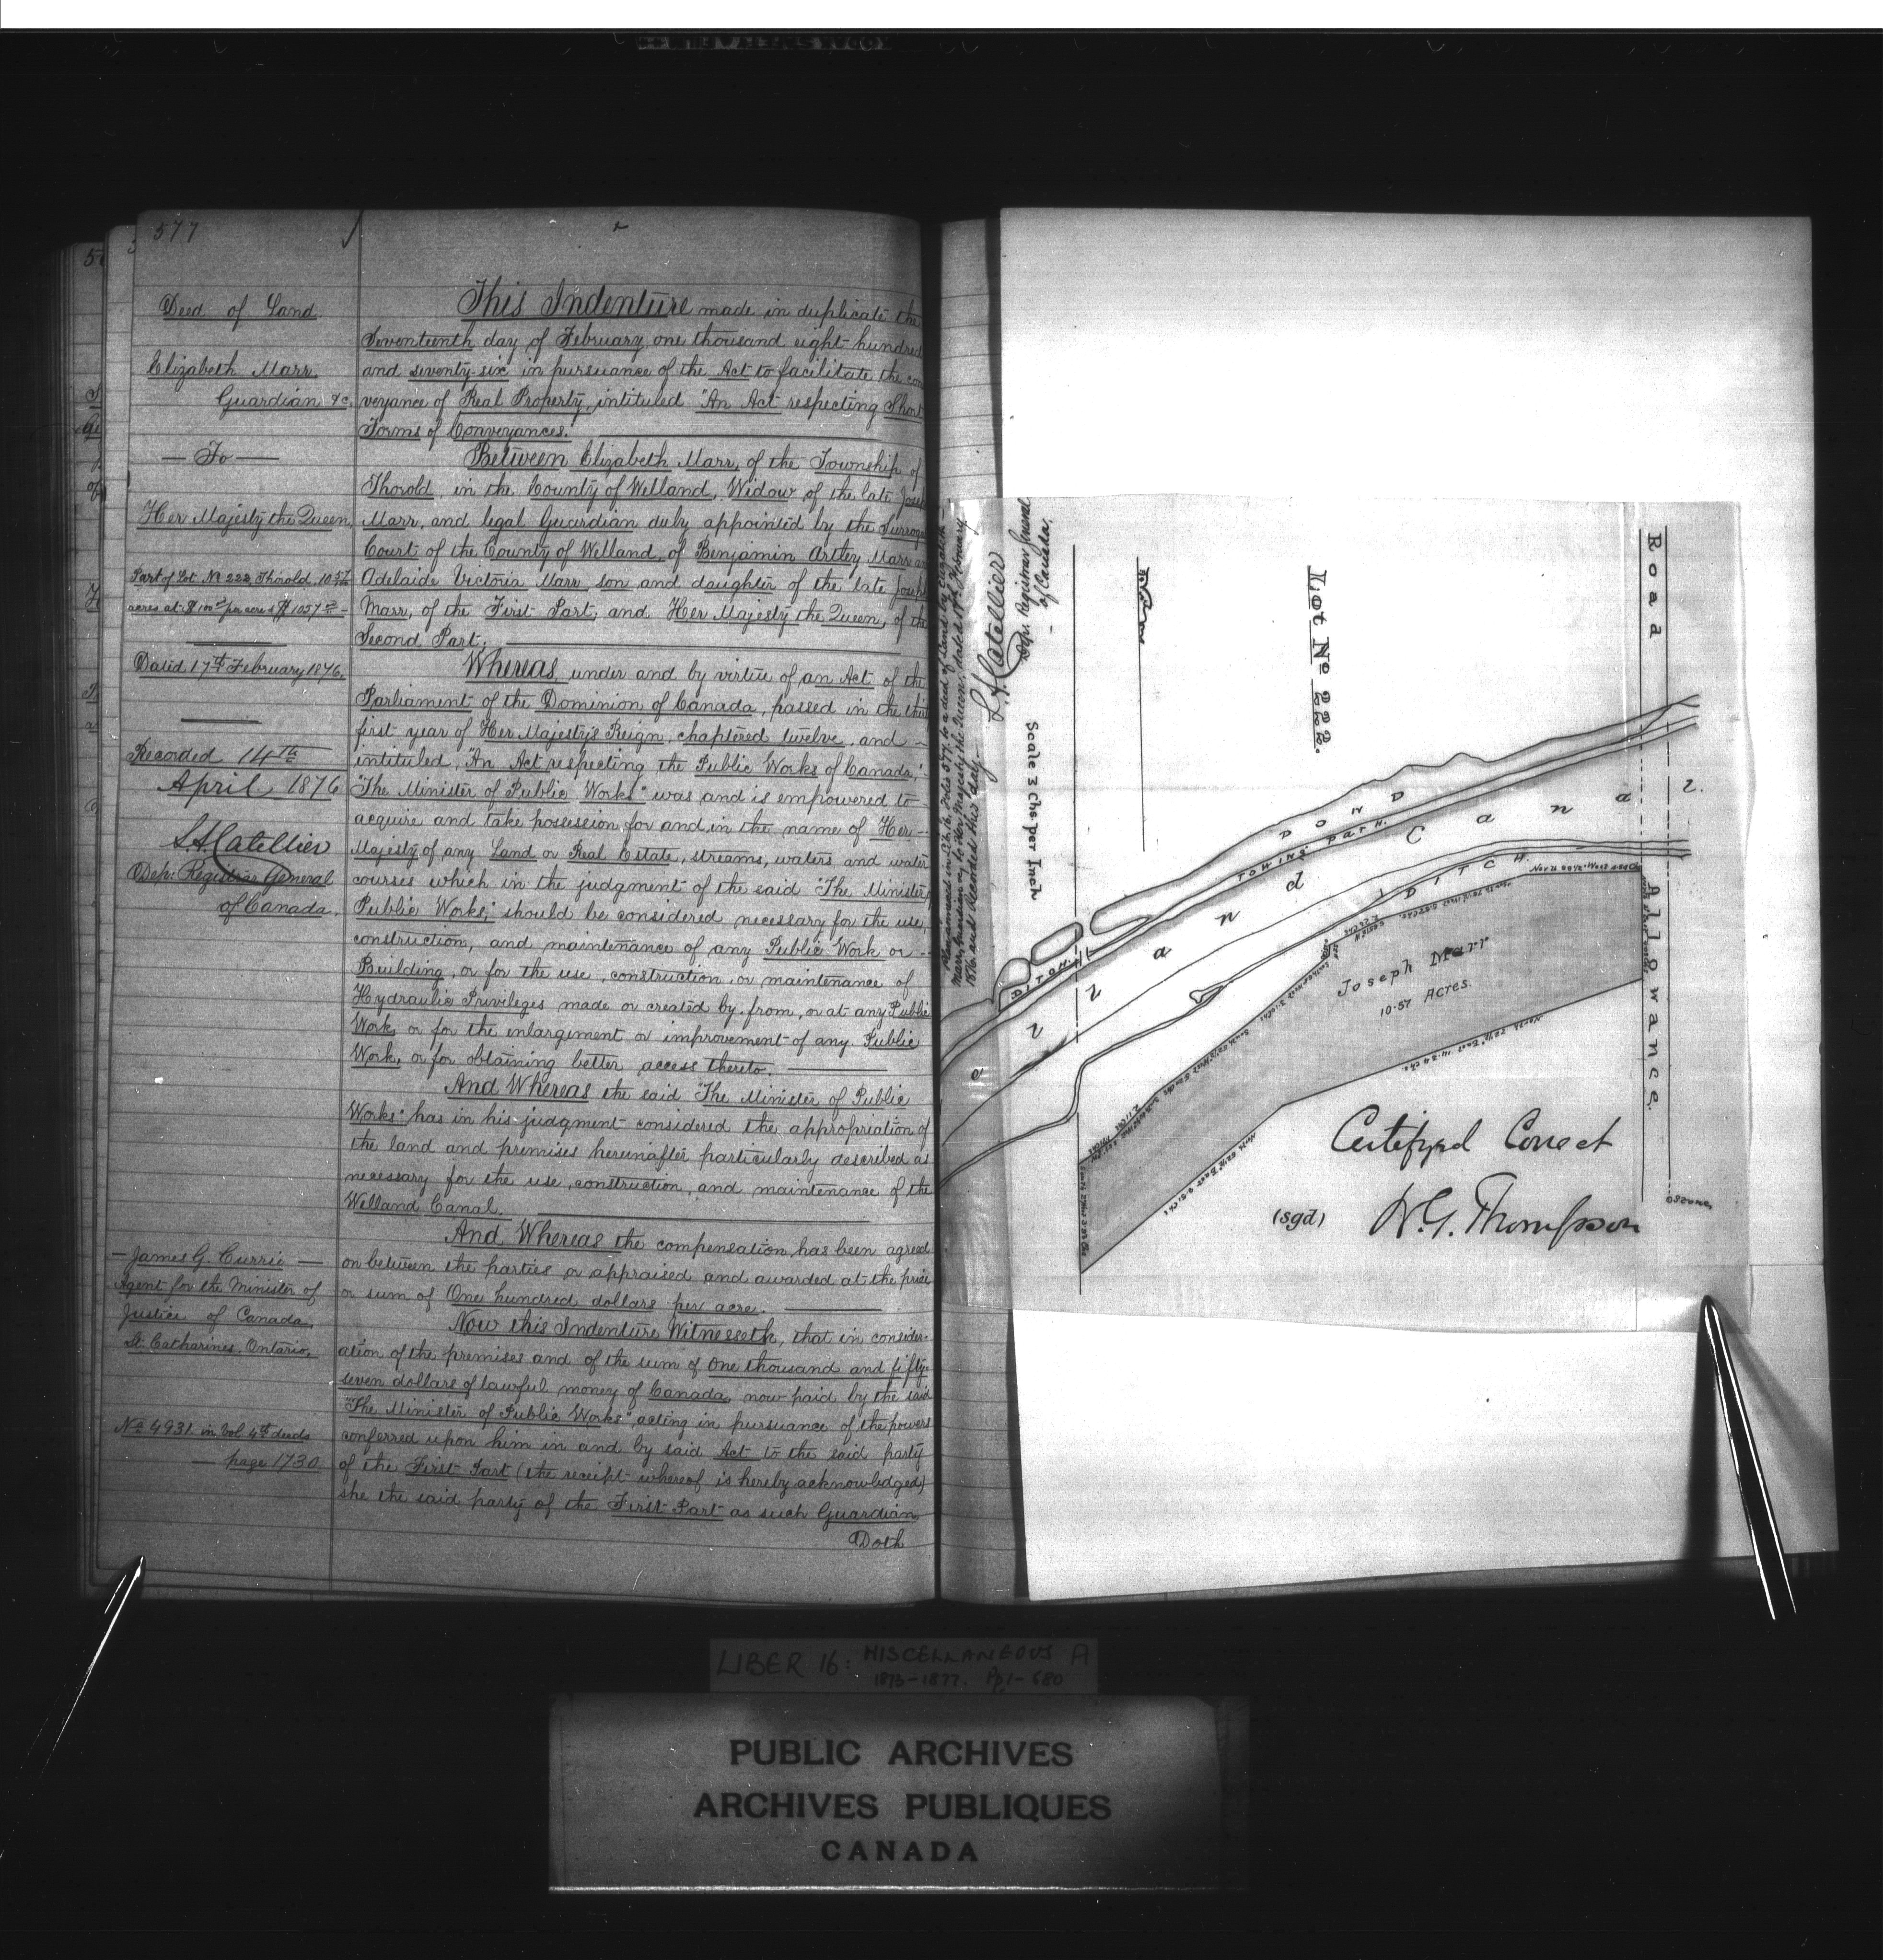 577
Deed of Land
Elizabeth Marr
Guardian &c.
— To —
Her Majesty the Queen
Part of Lot No 222, Thorold. 10 57/100
acres at $100 per acre $1057
Dated 17th February 1876.
Recorded 14th
April 1876
L.A. Catellier
Dep: Registrar General
of Canada.
— James G. Currie —
Agent for the Minister of
Justice of Canada,
St. Catharines, Ontario.
No 4931. in Vol 4th deeds
— page 1730
This Indenture made in duplicate the
Seventeenth day of February, one thousand eight hundred
and seventy-six in pursuance of the Act to facilitate the con
veyance of Real Property, intituled "An Act respecting Short
Forms of Conveyances."
Between Elizabeth Marr, of the Township of
Thorold, in the County of Welland, Widow of the late Joseph
Marr, and legal Guardian duly appointed by the Surrogate
Court of the County of Welland, of Benjamin Artley Marr and
Adelaide Victoria Marr son and daughter of the late Joseph
Marr, of the First Part, and Her Majesty the Queen, of the
Second Part.
Whereas, under and by virtue of an Act of the
Parliament of the Dominion of Canada, passed in the thirty
first year of Her Majesty's Reign, chaptered twelve, and —
intituled, "An Act respecting the Public Works of Canada,"
"The Minister of Public Works" was and is empowered to —
acquire and take possession for and in the name of Her —
Majesty of any Land or Real Estate, streams, waters and water
courses which in the judgment of the said "The Minister
Public Works," should be considered necessary for the use,
construction, and maintenance of any Public Work or —
Building, or for the use, construction, or maintenance of
Hydraulic Privileges made or created by, from, or at any Public
Work, or for the enlargement or improvement of any Public
Work, or for obtaining better access thereto.
And Whereas the said "The Minister of Public
Works" has in his judgment considered the appropriation of
the land and premises hereinafter particularly described as
necessary for the use, construction, and maintenance of the
Welland Canal.
And Whereas the compensation has been agreed
on between the parties or appraised and awarded at the price
or sum of One hundred dollars per acre.
Now this Indenture Witnesseth, that in consider-
ation of the premises and of the sum of One thousand and fifty-
seven dollars of lawful money of Canada, now paid by the said
"The Minister of Public Works" acting in pursuance of the powers
conferred upon him in and by said Act to the said party
of the First Part (the receipt whereof is hereby acknowledged)
she the said party of the First Part as such Guardian
Doth
Plan annexed in Lib. 16, Folio 577, to a deed of Land by Elizabeth
Marr, Guardian &c, to Her Majesty the Queen, dated 17th February
1876. and Recorded this day —
L.A. Catellier
Dep. Registrar General
of Canada.
Scale 3 Chs. per Inch
Lot No 222.
Road
Allowance.
POND
TOWING PATH.
Welland Canal.
DITCH.
DITCH
Joseph Marr
10.57 Acres.
Certifyed Correct
(sgd) W.G. Thompson
LIBER 16: MISCELLANEOUS A
1873-1877. Pp. 1-680
PUBLIC ARCHIVES
ARCHIVES PUBLIQUES
CANADA